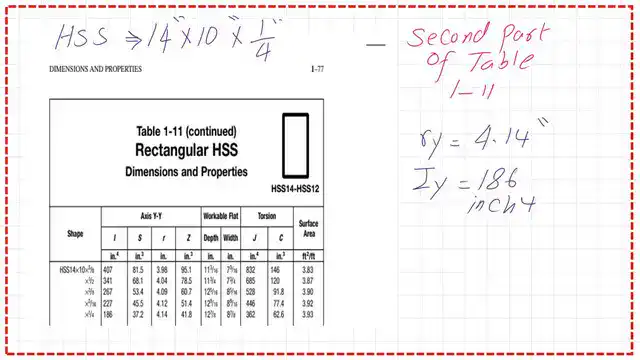 HSS ⇒ 14" × 10" × 1/4
— Second Part
Of Table
1-11
DIMENSIONS AND PROPERTIES 1–77
Table 1-11 (continued)
Rectangular HSS
Dimensions and Properties
HSS14-HSS12
ry = 4.14"
Iy = 186
inch4
Shape Axis Y-Y Workable Flat Torsion Surface Area
I S r Z Depth Width J C
in.⁴ in.³ in. in.³ in. in. in.⁴ in.³ ft²/ft
HSS14×10×5/8 407 81.5 3.98 95.1 11 3/16 7 3/16 832 146 3.83
×1/2 341 68.1 4.04 78.5 11 3/4 7 3/4 685 120 3.87
×3/8 267 53.4 4.09 60.7 12 5/16 8 5/16 528 91.8 3.90
×5/16 227 45.5 4.12 51.4 12 9/16 8 9/16 446 77.4 3.92
×1/4 186 37.2 4.14 41.8 12 7/8 8 7/8 362 62.6 3.93